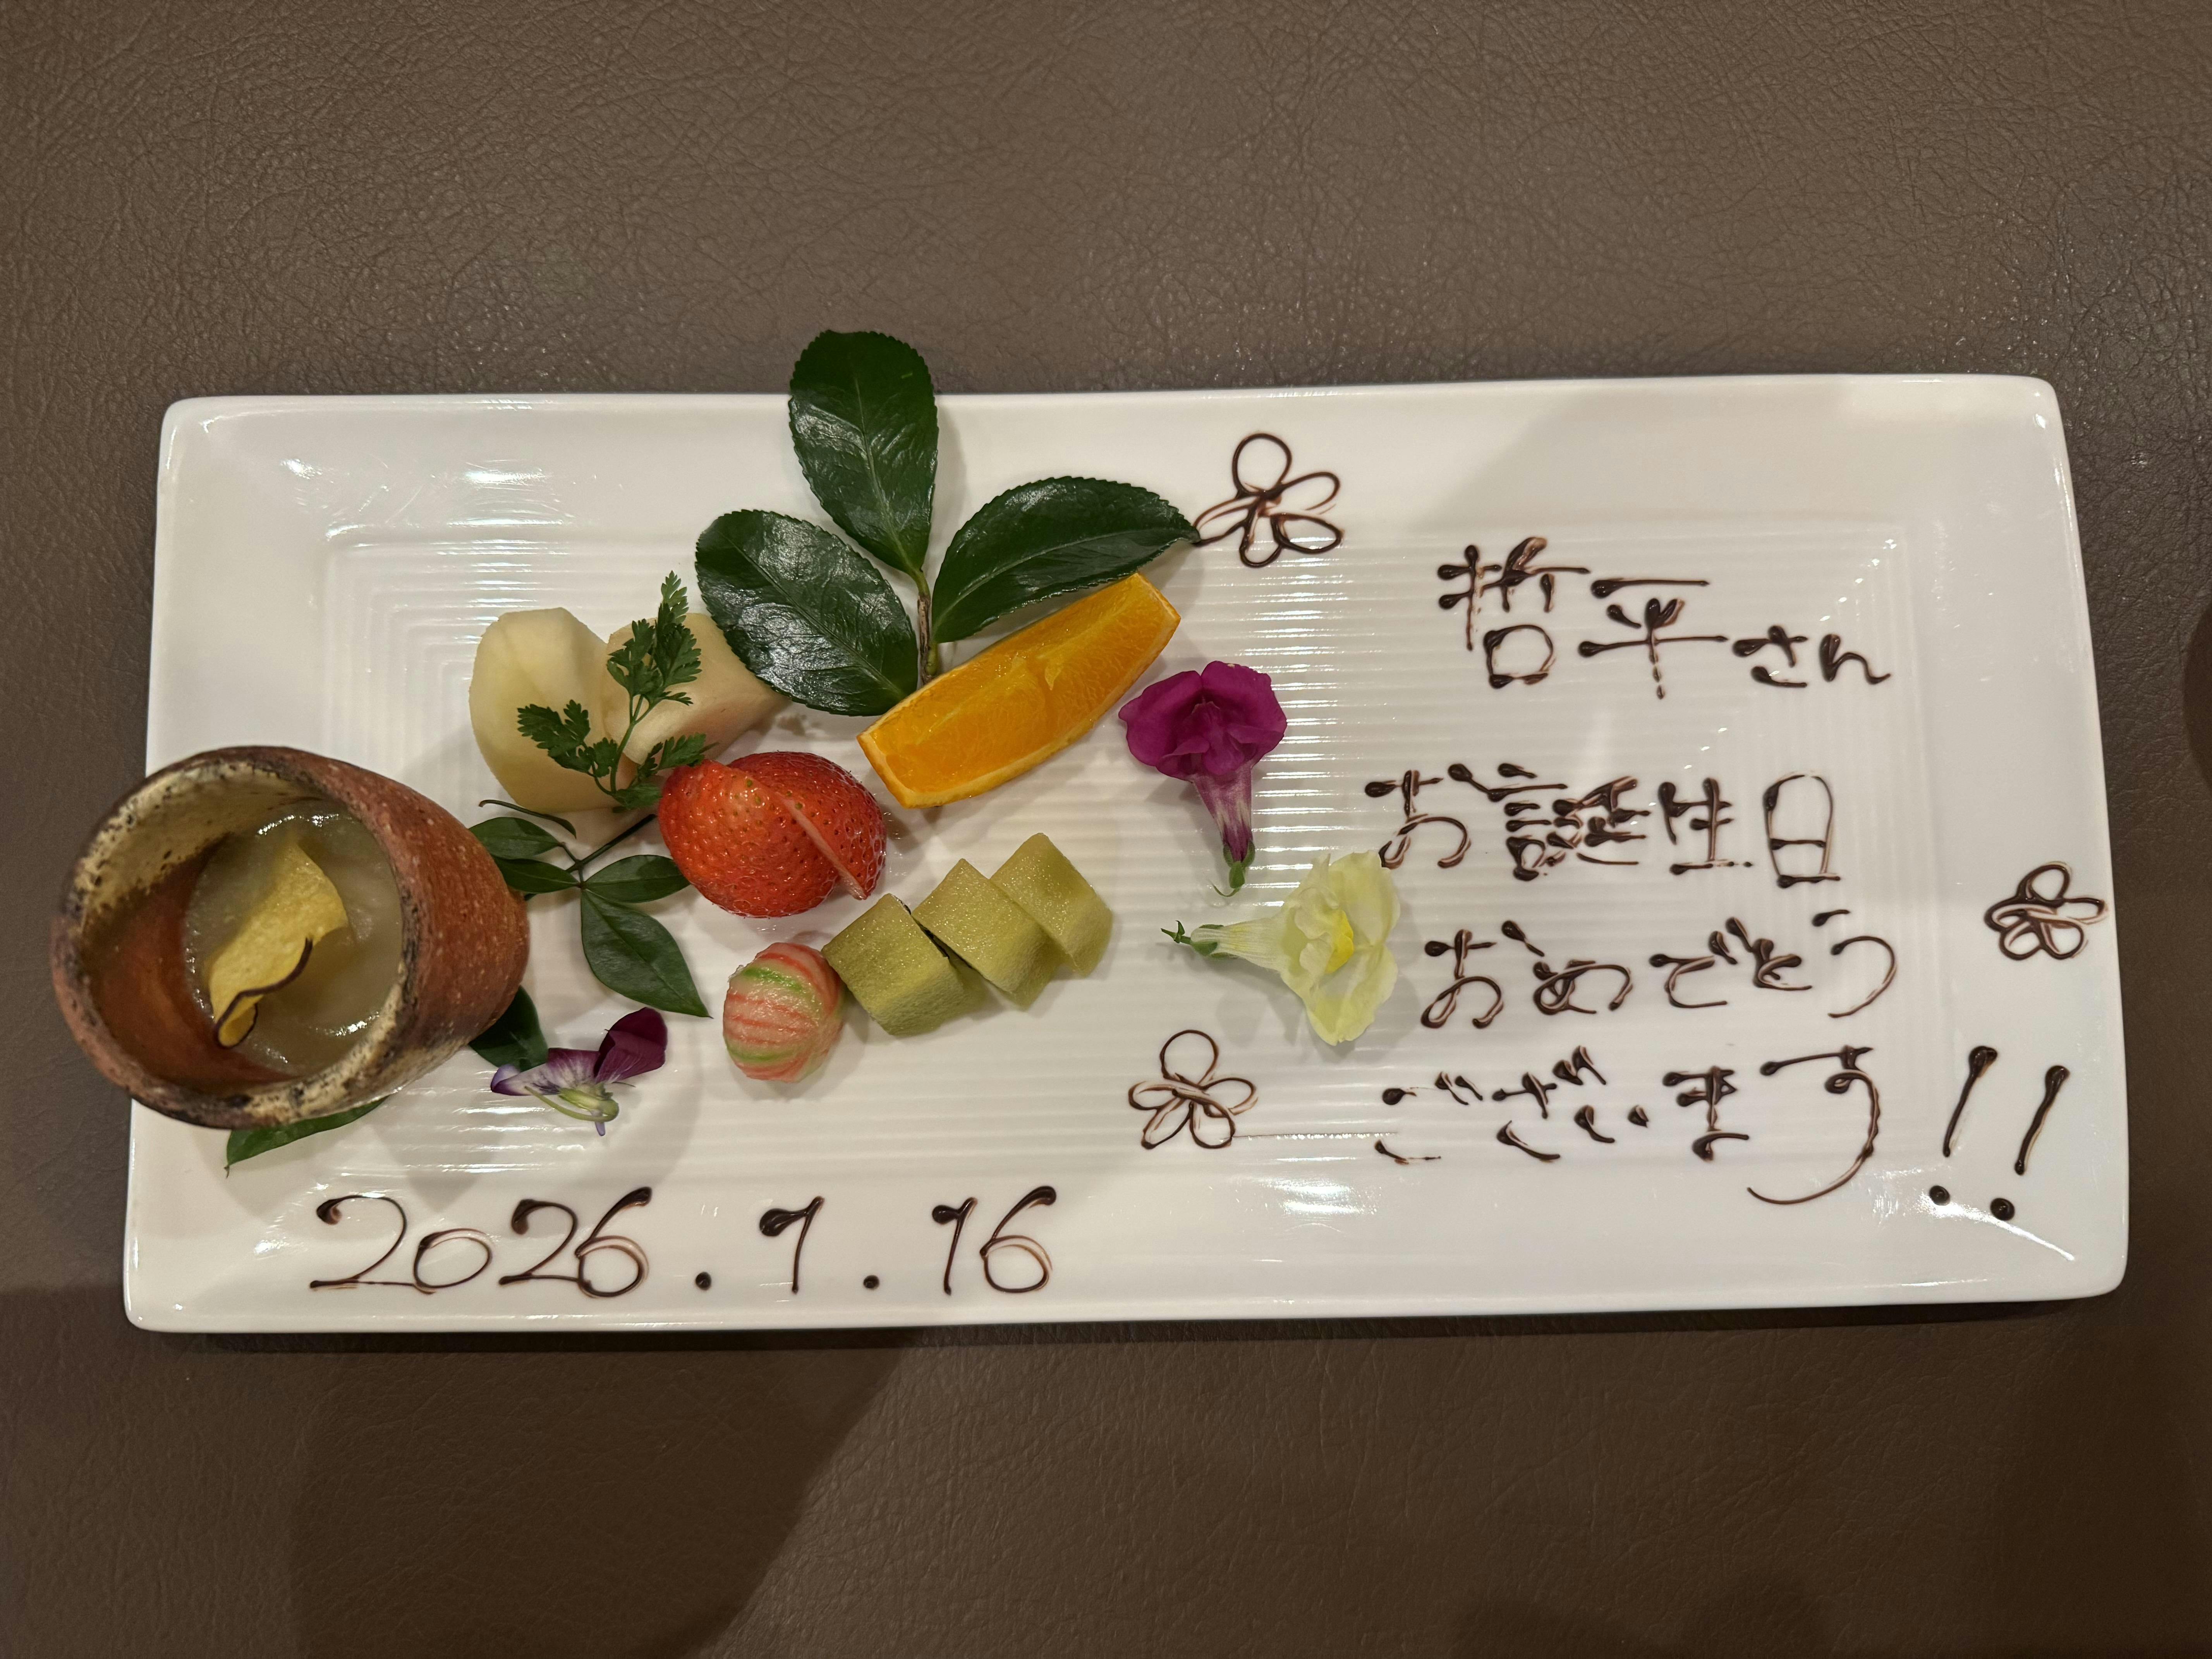 哲平さん
お誕生日
おめでとう
ございます!!
2026.1.16